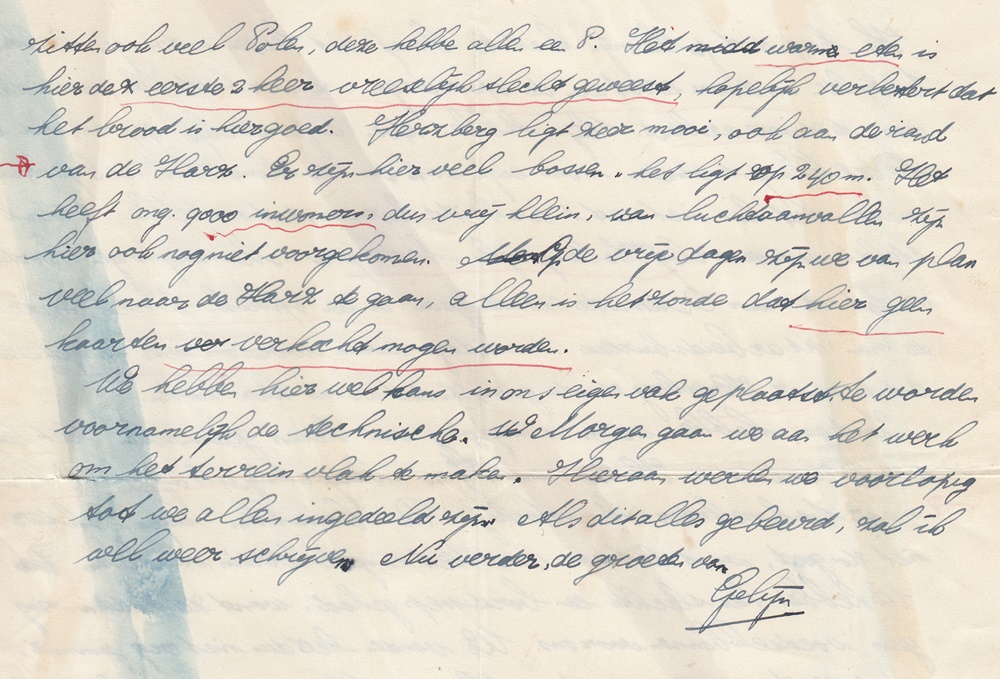 zitten ook veel Polen, deze hebbe allen een P. Het midd warme eten is
hier de eerste 2 keer vreeselijk slecht geweest, hopelijk verbetert dat
het brood is hier goed. Herzberg ligt zeer mooi, ook aan de rand
van de Harz. Er zijn hier veel bossen. het ligt op 240 m. Het
heeft ong. 9000 inwoners, dus vrij klein, van luchtaanvallen zijn
hier ook nog niet voorgekomen. Op de vrije dagen zijn we van plan
veel naar de Harz te gaan, alleen is het zonde dat hier geen
kaarten ver verkocht mogen worden.
We hebbe hier wel kans in ons eigen vak geplaatst te worden
voornamelijk de technische. Morgen gaan we aan het werk
om het terrein vlak te maken. Hieraan werken we voorlopig
tot we allen ingedeeld zijn. Als dit alles gebeurd, zal ik
weer schrijven. Nu verder, de groeten van